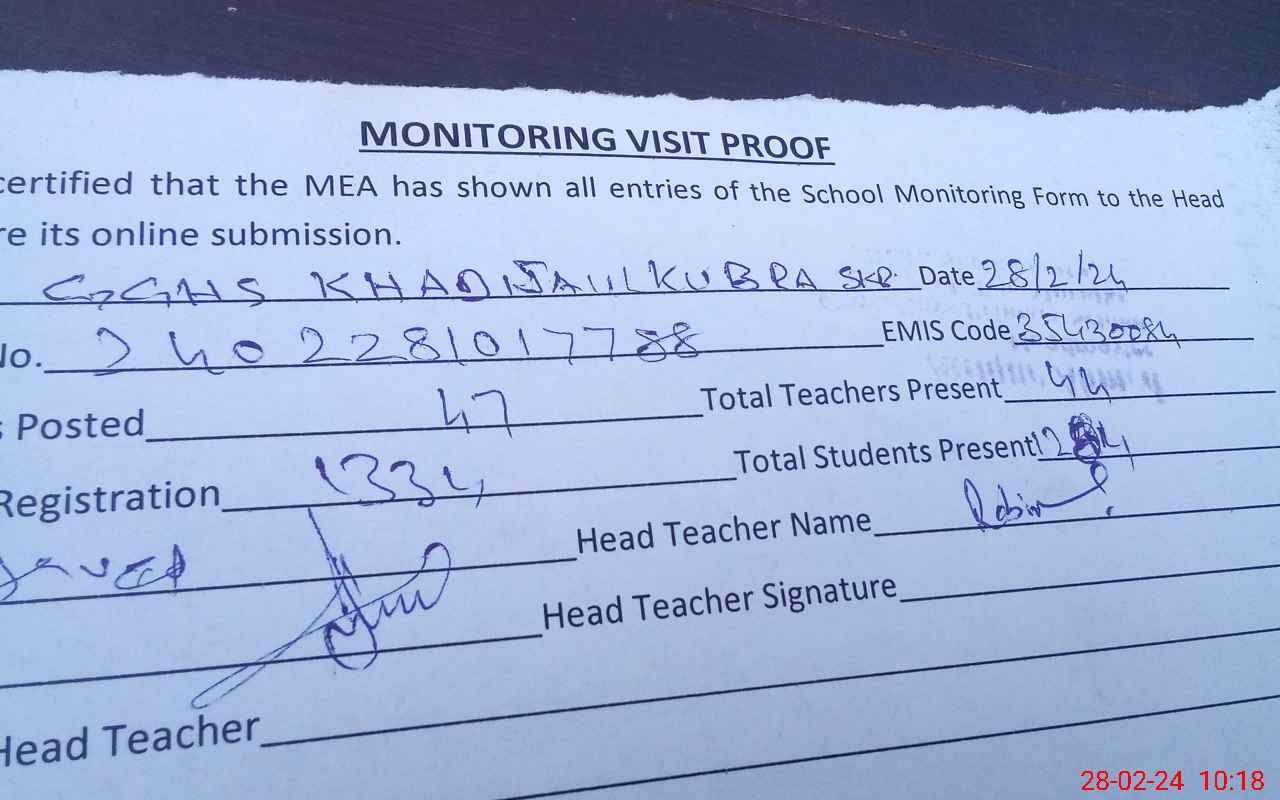 MONITORING VISIT PROOF
certified that the MEA has shown all entries of the School Monitoring Form to the Head
re its online submission.
GGHS KHADIJAULKUBRA SKP. Date 28/2/24
No. 2402281017788 EMIS Code 35430084
s Posted 47 Total Teachers Present 44
Registration 1334 Total Students Present
Head Teacher Name
Head Teacher Signature
Head Teacher
28-02-24 10:18